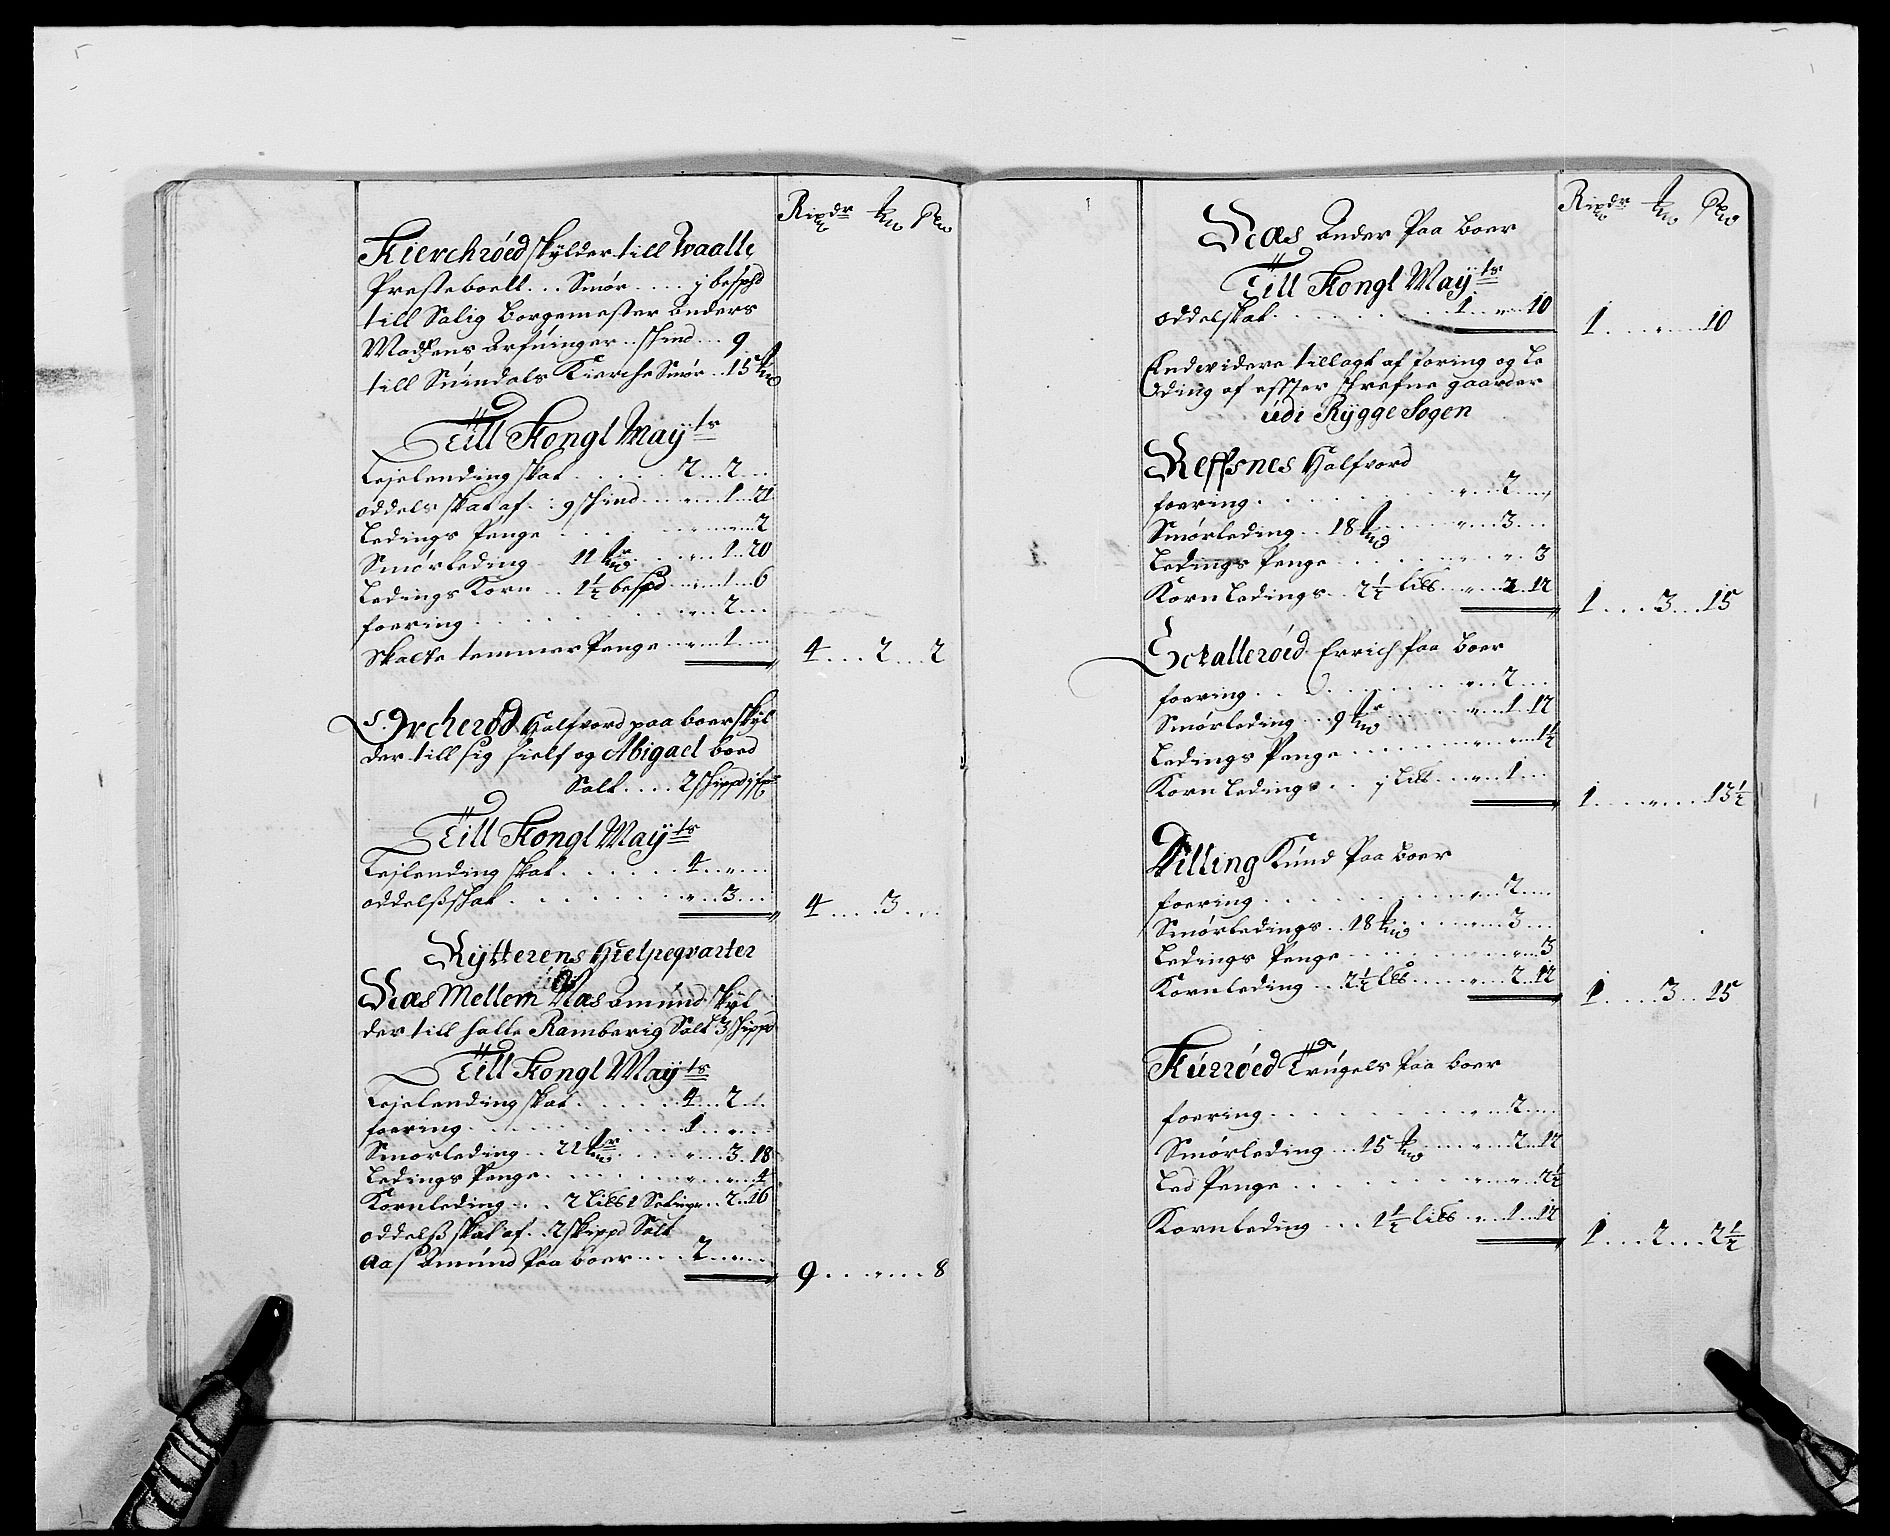 Rixdr mk sk
Kierchröed skylder till Waalle
Presteboell ... Smör .... j besphd
till Salig Borgemester Anders
Madsens Arfuinger .. skind ... 9
till Suindals Kierche Smör .. 15 mk
Till Kongl Mayts
Lejelending skat ...... 2 ... 2 ...
oddels skat af .. 9 skind .... " ... 1 .. 21
Ledings Penge ...... " ... " ... 2
Smörleding .. 11 mkr .... " ... 1 .. 20
Ledings Korn .. 1½ bespd .. " ... 1 .. 6
foering ......... " ... 2 ...
Skatte temmer Penge .. " ... 1 ...
4 .... 2 ... 2
Orcheröd Halfvord paa boer skyl
der till sig sielf og Abigael boed
Salt .... 2 skippd
Till Kongl Mayts
Lejlending skat ...... 4 ... " ...
oddelsskat ........ " ... 3 ...
4 .... 3 ...
Rytterens Hielpeqvarter
Raes Mellem Aas Amund skyl
der till Halle Ramberig Salt 3 skippd
Till Kongl Mayts
Lejelending skat ...... 4 ... 2 ...
foering .......... 1 ... " ...
Smörleding .. 22 mkr .... " ... 3 .. 18
Ledings Penge ...... " ... " ... 4
Kornleding .. 2 Lisb 1 Seting .. 2 .. 16
oddelss skat af .. 2 skippd Salt
Aas Amund Paa boer .... 2 ... " ...
9 .... " .... 8
Rixdr mk sk
Raes Ander Paa boer
Till Kongl Mayts
oddelskat ......... 1 ... " ... 10
1 .... " .... 10
Endvidere tillagt af foring og Le
ding af effter skrefne gaarder
udi Rygge Sogen
Reffsnes Halfvord
foering ......... " ... 2 ...
Smörleding .. 18 mk .... " ... 3 ...
Ledings Penge ...... " ... " .. 3
Korn Ledings .. 2½ Lisb .. " ... 2 .. 12
1 .... 3 ... 15
Erich Paa boer
foering ......... " ... 2 ...
Smörleding ... 9 mkr .... " ... 1 .. 12
Ledings Penge ...... " ... " ... 1½
Korn Ledings .. j Lisb ... " ... 1 ...
1 .... " .... 13½
Dilling Knud Paa boer
foering ......... " ... 2 ...
Smörledings .. 18 mk .... " ... 3 ...
Ledings Penge ...... " ... " ... 3
Kornleding ... 2½ Lbs .... " ... 2 .. 12
1 .... 3 ... 15
Kurröed Trugels Paa boer
foering ......... " ... 2 ...
Smörleding ... 15 mk .... " ... 2 .. 12
Led Penge ........ " ... " ... 2½
Kornleding ... 1½ Lisb .. " ... 1 ... 12
1 .... 2 ... 2½